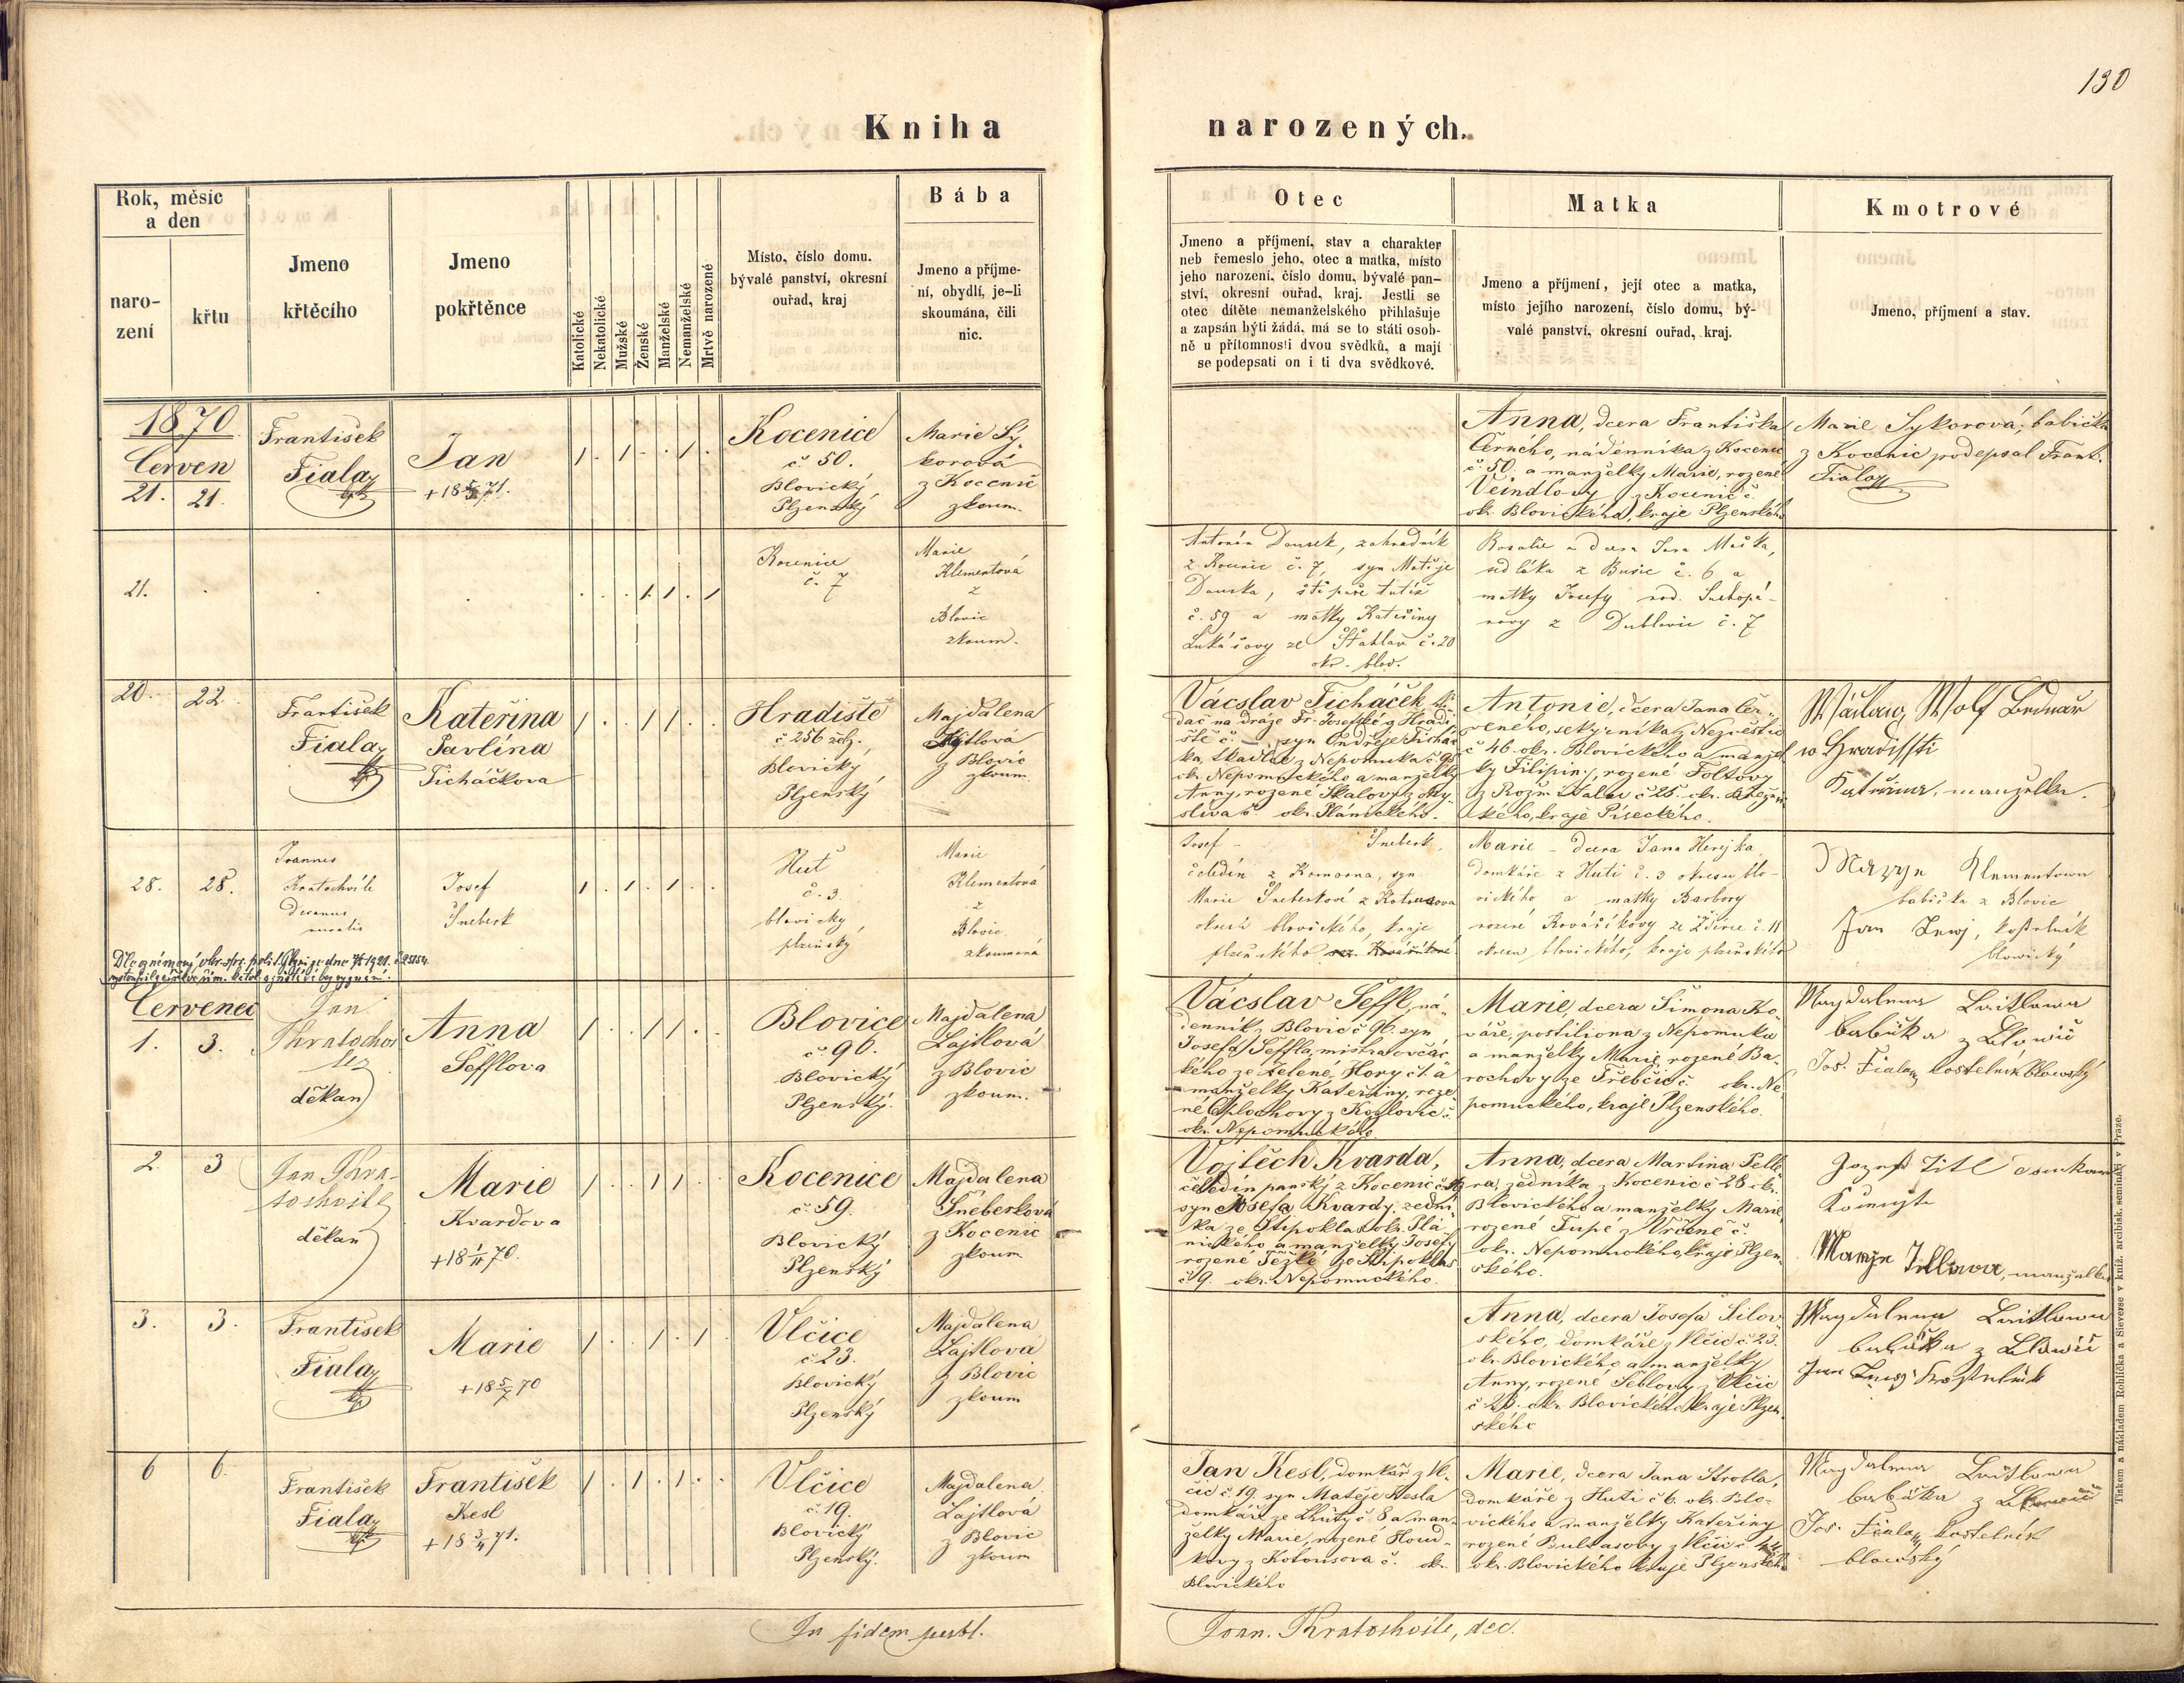 130
Kniha
narozených.
Rok, měsíc
a den
naro-
zení
křtu
Jmeno
křtěcího
Jmeno
pokřtěnce
Katolické
Nekatolické
Mužské
Ženské
Manželské
Nemanželské
Mrtvě narozené
Místo, číslo domu.
bývalé panství, okresní
ouřad, kraj
Bába
Jmeno a příjme-
ní, obydlí, je-li
skoumána, čili
nic.
Otec
Jmeno a příjmení, stav a charakter
neb řemeslo jeho, otec a matka, místo
jeho narození, číslo domu, bývalé pan-
ství, okresní ouřad, kraj. Jestli se
otec dítěte nemanželského přihlašuje
a zapsán býti žádá, má se to státi osob-
ně u přítomnosti dvou svědků, a mají
se podepsati on i ti dva svědkové.
Matka
Jmeno a příjmení, její otec a matka,
místo jejího narození, číslo domu, bý-
valé panství, okresní ouřad, kraj.
Kmotrové
Jmeno, příjmení a stav.
1870
Červen
21. 21.
František
Fiala
Jan
+18 5/3 71.
Kocenice
č. 50.
Blovický
Plzenský
Marie Sý-
korová
z Kocenic
zkoum.
Anna, dcera Františka
Černého, nádenníka z Kocenic
č. 50. a manželky Marie, rozené
Veindlovy z Kocenic č.
okr. Blovického, kraje Plzenského
Marie Sykorová, babička
z Kocenic podepsal Frant.
Fiala
21.
Kocenice
č. 7
Marie
Klementová
z
Blovic
zkoum.
Antonín Dousek, zahradník
z Kocenic č. 7, syn Matěje
Douska, tutíž
č. 59 a matky Kateřiny
Lukášovy ze Šťahlav č. 20
okr. blov.
Rosalie dcera Jana Maška,
sedláka z Bušic č. 6 a
matky Josefy rod. Suchopá-
rovy z č. 7
20. 22.
František
Fiala
Kateřina
Pavlína
Ticháčkova
Hradiště
č. 256
Blovický
Plzenský
Majdalena
Lajtlová
z Blovic
zkoum.
Vácslav Ticháček, hlí-
dač na dráze Fr. Josefské z Hradi-
ště č. —, syn Ondřeje Tichá-
ka, tkadlce z Nepomuka č. 95
okr. Nepomuckého a manželky
Anny, rozené Skalovy z
okr. Plánického.
Antonie, dcera Jana Čer-
veného, z
č. 46. okr. Blovického a manžel-
ky Filipiny, rozené Foltovy
z Rožmitálu č. 25. okr.
kého, kraje Píseckého.
Wáclaw Wolf Bednář
w Hradissti
Kateřina, manzelka.
28. 28.
Joannes
Kratochvíle
Decanus
Josef
Šneberk
Huť
č. 3.
blovický
plzeňský
Marie
Klementová
z
Blovic
zkoumaná
Josef Šneberk,
čeledín z Komorna, syn
Marie Šneberkové z Kotousova
okresu blovického, kraje
plzeňského
Marie – dcera Jana Herejka
domkáře z Huti č. 3 okresu blo-
vického a matky Barbory
rozené Kovaříkovy ze Ždírce č. 11
okresu blovického, kraje plzeňského
Marye Klementowa
babička z Blovic
Jan kostelník
blowický
Červenec
1. 3.
Jan
Kratochví-
le
děkan
Anna
Šefflova
Blovice
č. 96.
Blovický
Plzenský.
Majdalena
Lajtlová
z Blovic
zkoum.
Vácslav Šeffl, ná-
denník z Blovic č. 96. syn
Josefa Šeffla, mistra ovčác-
kého ze Zelené Hory č. 1. a
manželky Kateřiny, roze-
né z Kozlovic č.
okr. Nepomuckého
Marie, dcera Šimona Ko-
váře, postiliona z Nepomuka
a manželky Marie rozené Ba-
rochovy ze Třebčic č. okr. Ne-
pomuckého, kraje Plzenského.
Magdalena Laitlowa
babička z Blowic
Jos. Fiala kostelník blowský
2. 3
Jan Kra-
tochvíle
děkan
Marie
Kvardova
+18 1/11 70.
Kocenice
č. 59.
Blovický
Plzenský
Majdalena
Šneberková
z Kocenic
zkoum
Vojtěch Kvarda,
čeledín panský z Kocenic č.
syn Josefa Kvardy, zední-
ka ze Štipoklas okr. Plá-
nického a manželky Josefy
rozené Težké ze Štipoklas
č. 9. okr. Nepomuckého.
Anna, dcera Martina Pelle-
ra, zedníka z Kocenic č. 28 okr.
Blovického a manželky Marie
rozené Tupé z Vrčeně č.
okr. Nepomuckého, kraje Plzen-
ského.
Jozef Titl
Marye Titlowa, manzelka
3. 3.
František
Fiala
Marie
+18 5/7 70
Vlčice
č. 23.
Blovický
Plzenský
Majdalena
Lajtlová
z Blovic
zkoum
Anna, dcera Josefa Silov-
ského, domkáře z Vlčic č. 23.
okr. Blovického a manželky
Anny, rozené Šeblovy z Vlčic
č. 20. okr. Blovického kraje Plzen-
ského
Magdalena Laitlowa
babička z Blowic
Jan kostelník
6 6.
František
Fiala
František
Kesl
+18 3/4 71.
Vlčice
č. 19.
Blovický
Plzenský.
Majdalena
Lajtlová
z Blovic
zkoum
Jan Kesl, domkář z Vl-
čic č. 19. syn Matěje Kesla
domkáře ze Lhůty č. 8 a man-
želky Marie, rozené Houd-
kovy z Kotousova č. okr.
Blovického
Marie, dcera Jana Strobla,
domkáře z Huti č. 6. okr. Blo-
vického a manželky Kateřiny
rozené z Vlčic č.
okr. Blovického kraje Plzenského
Magdalena Laitlowa
babička z Blowic
Jos. Fiala kostelník
blowský
In fidem publ.
Joan. Kratochvíle, dec.
Tiskem a nákladem Rohlíčka a Sieverse v kníž. arcibisk. semináři v Praze.